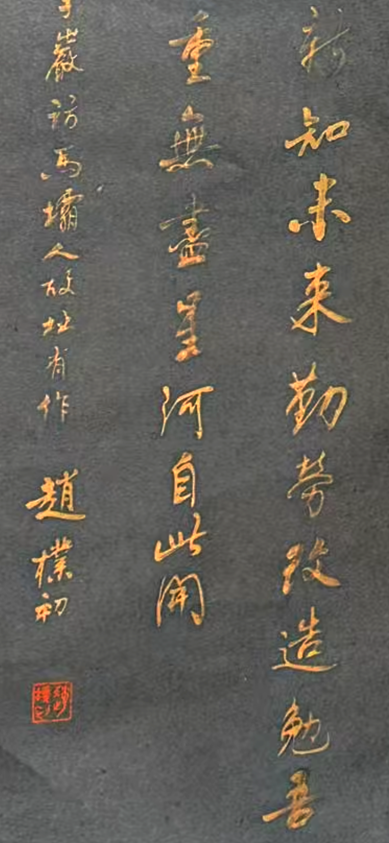 新知未来勤劳改造勉吾
重無盡星河自此開
巖訪馬壩人故址有作
趙樸初